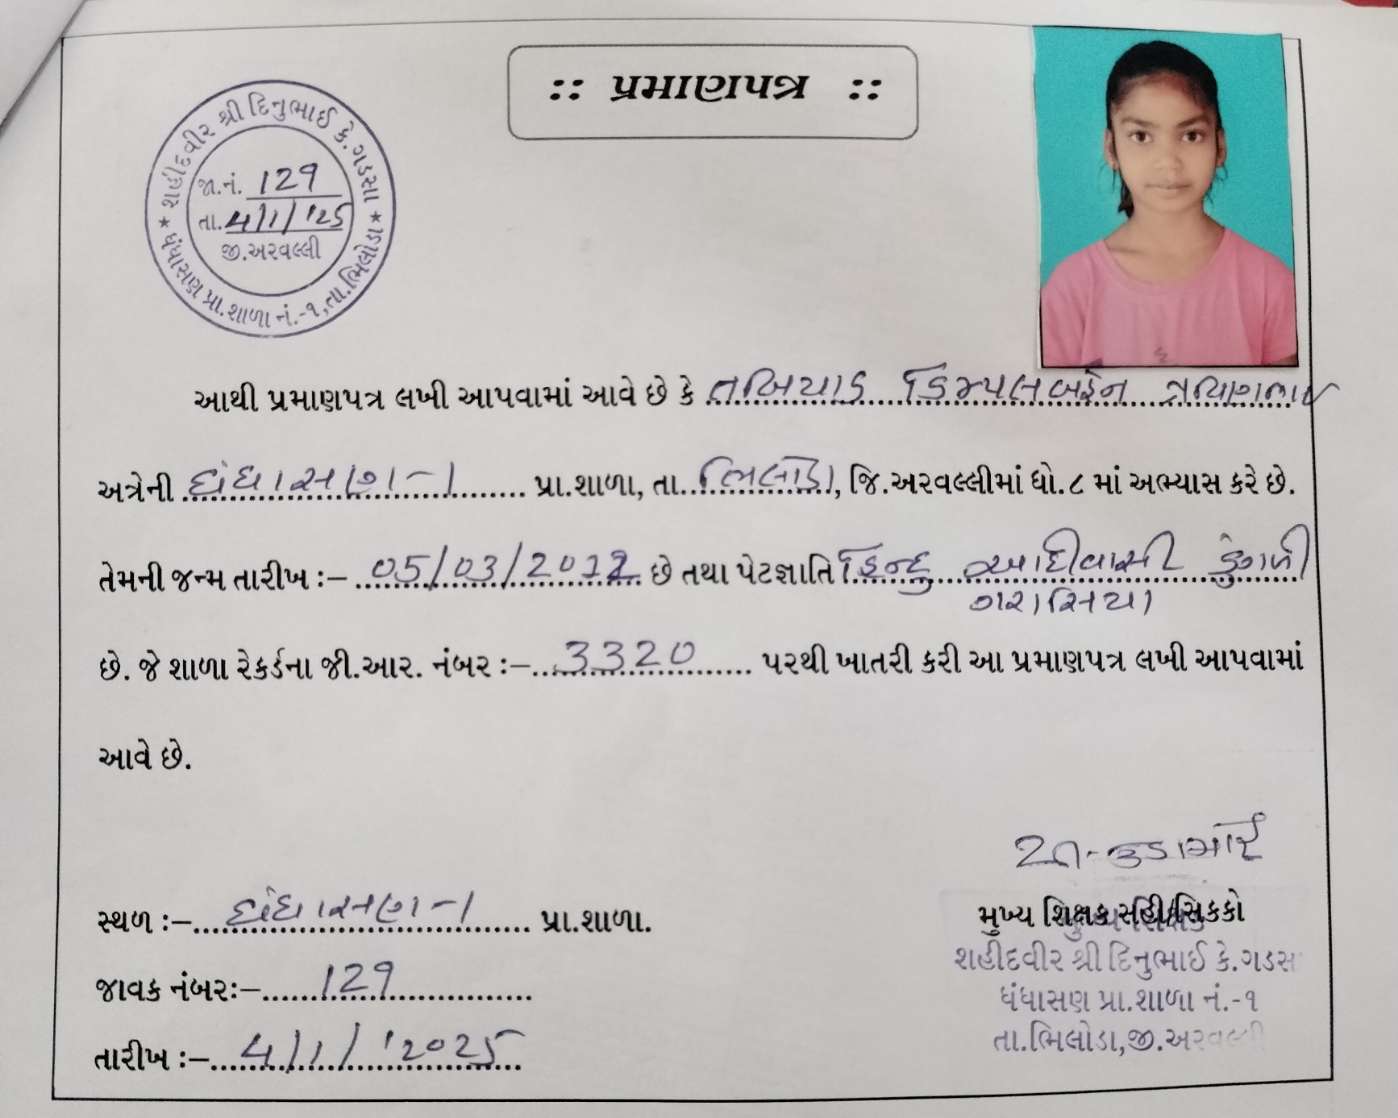 :: પ્રમાણપત્ર ::
શહીદવીર શ્રી દિનુભાઈ કે.ગડસા
જા.નં. 129
તા. 4/1/'25
જી.અરવલ્લી
★ ધંધાસણ પ્રા.શાળા નં.-૧,તા.ભિલોડા ★
આથી પ્રમાણપત્ર લખી આપવામાં આવે છે કે તબિયાડ ડિમ્પલબહેન
અત્રેની ધંધાસણ-1 પ્રા.શાળા, તા. ભિલોડા, જિ.અરવલ્લીમાં ધો.૮ માં અભ્યાસ કરે છે.
તેમની જન્મ તારીખ :– 05/03/2012 છે તથા પેટજ્ઞાતિ હિન્દુ આદીવાસી ડુંગળી
ગરાસિયા
છે. જે શાળા રેકર્ડના જી.આર. નંબર :– 3320 પરથી ખાતરી કરી આ પ્રમાણપત્ર લખી આપવામાં
આવે છે.
સ્થળ :– ધંધાસણ-1 પ્રા.શાળા.
જાવક નંબર:– 129
તારીખ :– 4/1/'2025
મુખ્ય શિક્ષક સહી/સિકકો
શહીદવીર શ્રી દિનુભાઈ કે.ગડસા
ધંધાસણ પ્રા.શાળા નં.-૧
તા.ભિલોડા,જી.અરવલ્લી